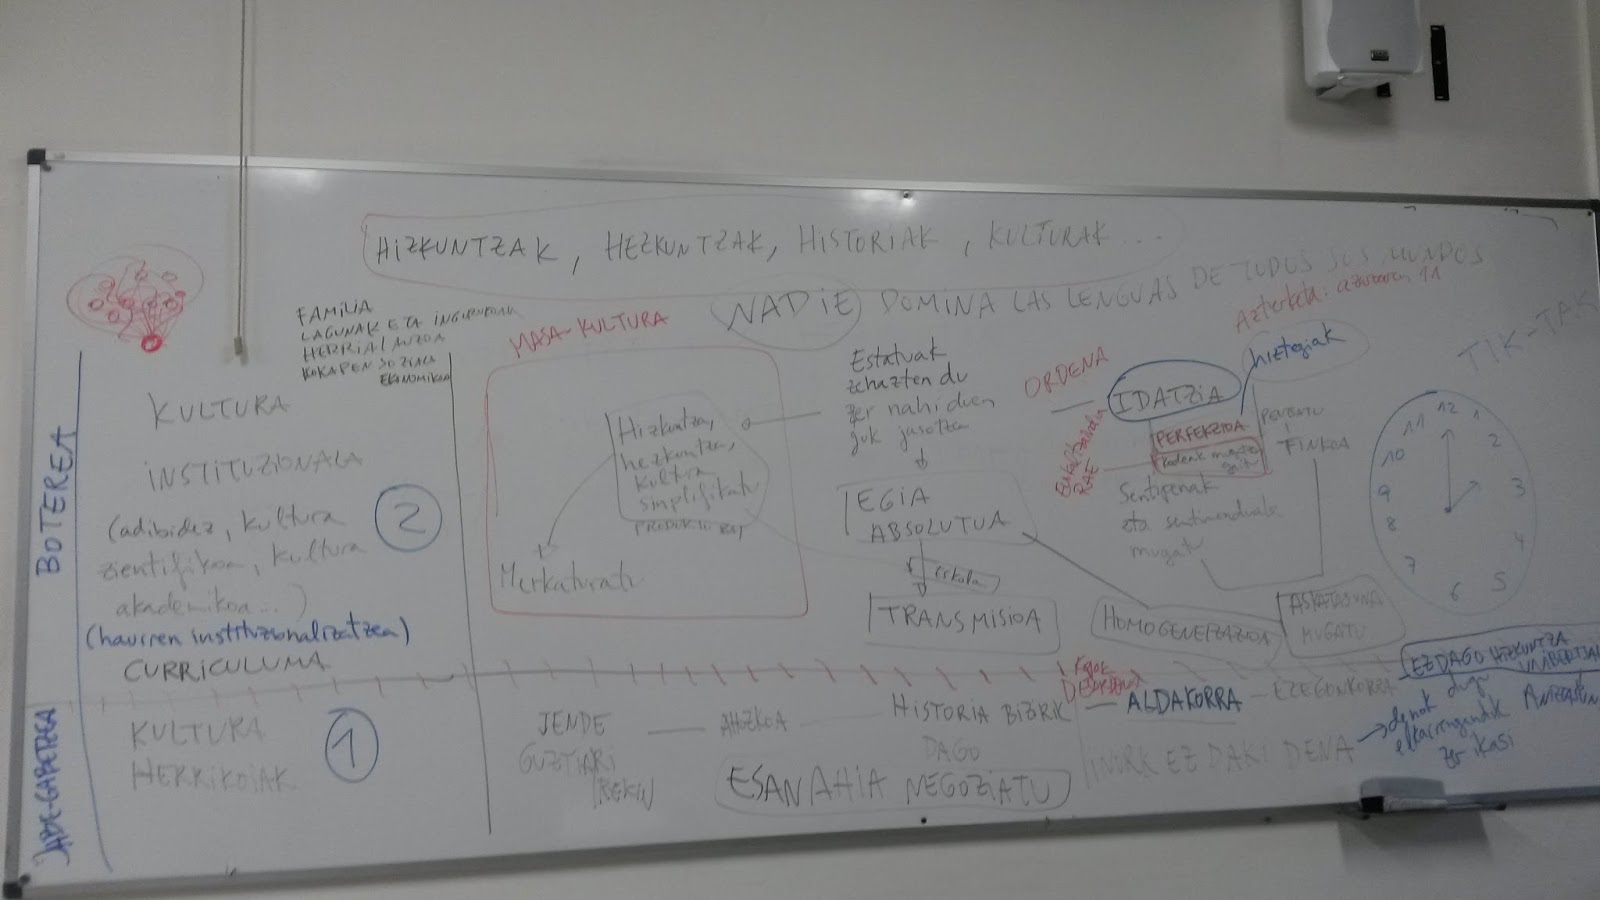 HIZKUNTZAK, HEZKUNTZAK, HISTORIAK, KULTURAK...
NADIE DOMINA LAS LENGUAS DE TODOS SUS MUNDOS
Azterketa: azaroaren 11
TIK-TAK
FAMILIA
LAGUNAK ETA
HERRIA/AUZOA
KOKAPEN SOZIALA
EKONOMIKOA
BOTEREA
KULTURA
INSTITUZIONALA
2
(adibidez, kultura
zientifikoa, kultura
akademikoa...)
(haurren instituzionalizatzea)
CURRICULUMA
MASA-KULTURA
Hizkuntza,
hezkuntza,
kultura
simplifikatu
PRODUKTU BAT
Merkaturatu
Estatuak
zehazten du
zer nahi duen
guk jasotzea
EGIA
ABSOLUTUA
Eskola
TRANSMISIOA
ORDENA
IDATZIA
hiztegiak
PERFEKZIOA
Kodeak
Euskaltzaindia
RAE
PENTSATU
FINKOA
Sentipenak
eta
mugatu
HOMOGENEIZAZIOA
ASKATASUNA
MUGATU
12
1
2
3
4
5
6
7
8
9
10
11
EZ DAGO HIZKUNTZA
UNIBERTSALIK
JABE-GABETZEA
KULTURA
HERRIKOIAK
1
JENDE
GUZTIARI
AHIZKOA
HISTORIA BIZIRIK
DAGO
ESANAHIA NEGOZIATU
ALDAKORRA
EZEGONKORRA
INORK EZ DAKI DENA
denok dugu
elkarrengandik
zer ikasi